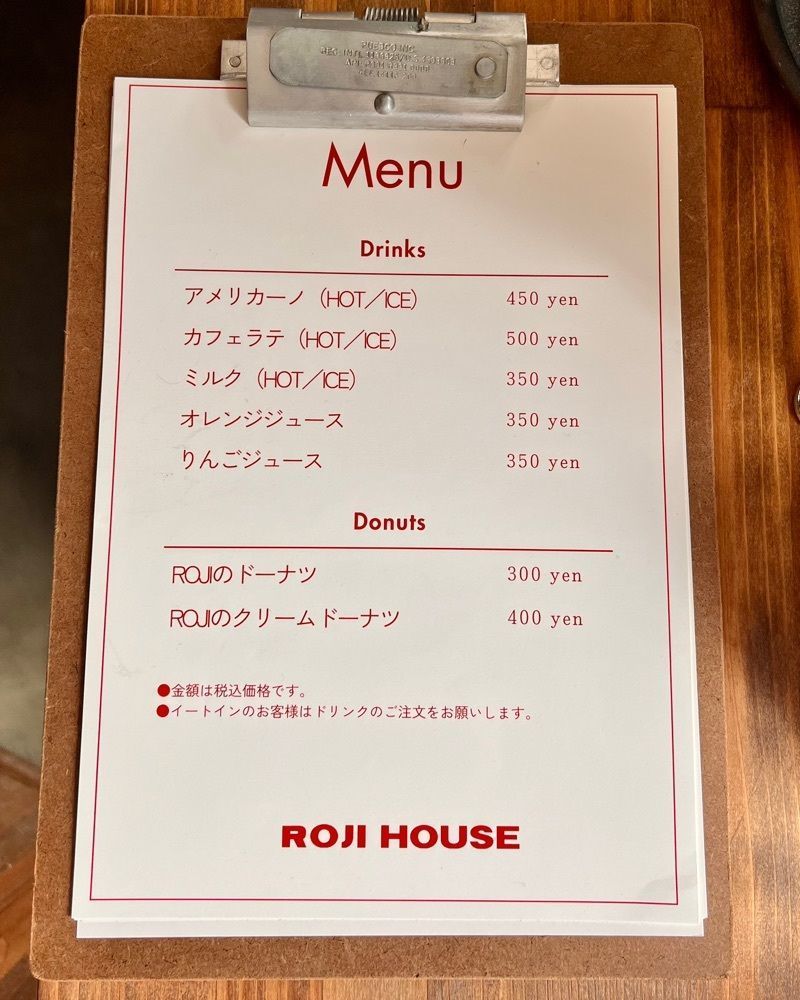 PUEBCO INC.
Menu
Drinks
アメリカーノ（HOT／ICE） 450 yen
カフェラテ（HOT／ICE） 500 yen
ミルク（HOT／ICE） 350 yen
オレンジジュース 350 yen
りんごジュース 350 yen
Donuts
ROJIのドーナツ 300 yen
ROJIのクリームドーナツ 400 yen
●金額は税込価格です。
●イートインのお客様はドリンクのご注文をお願いします。
ROJI HOUSE